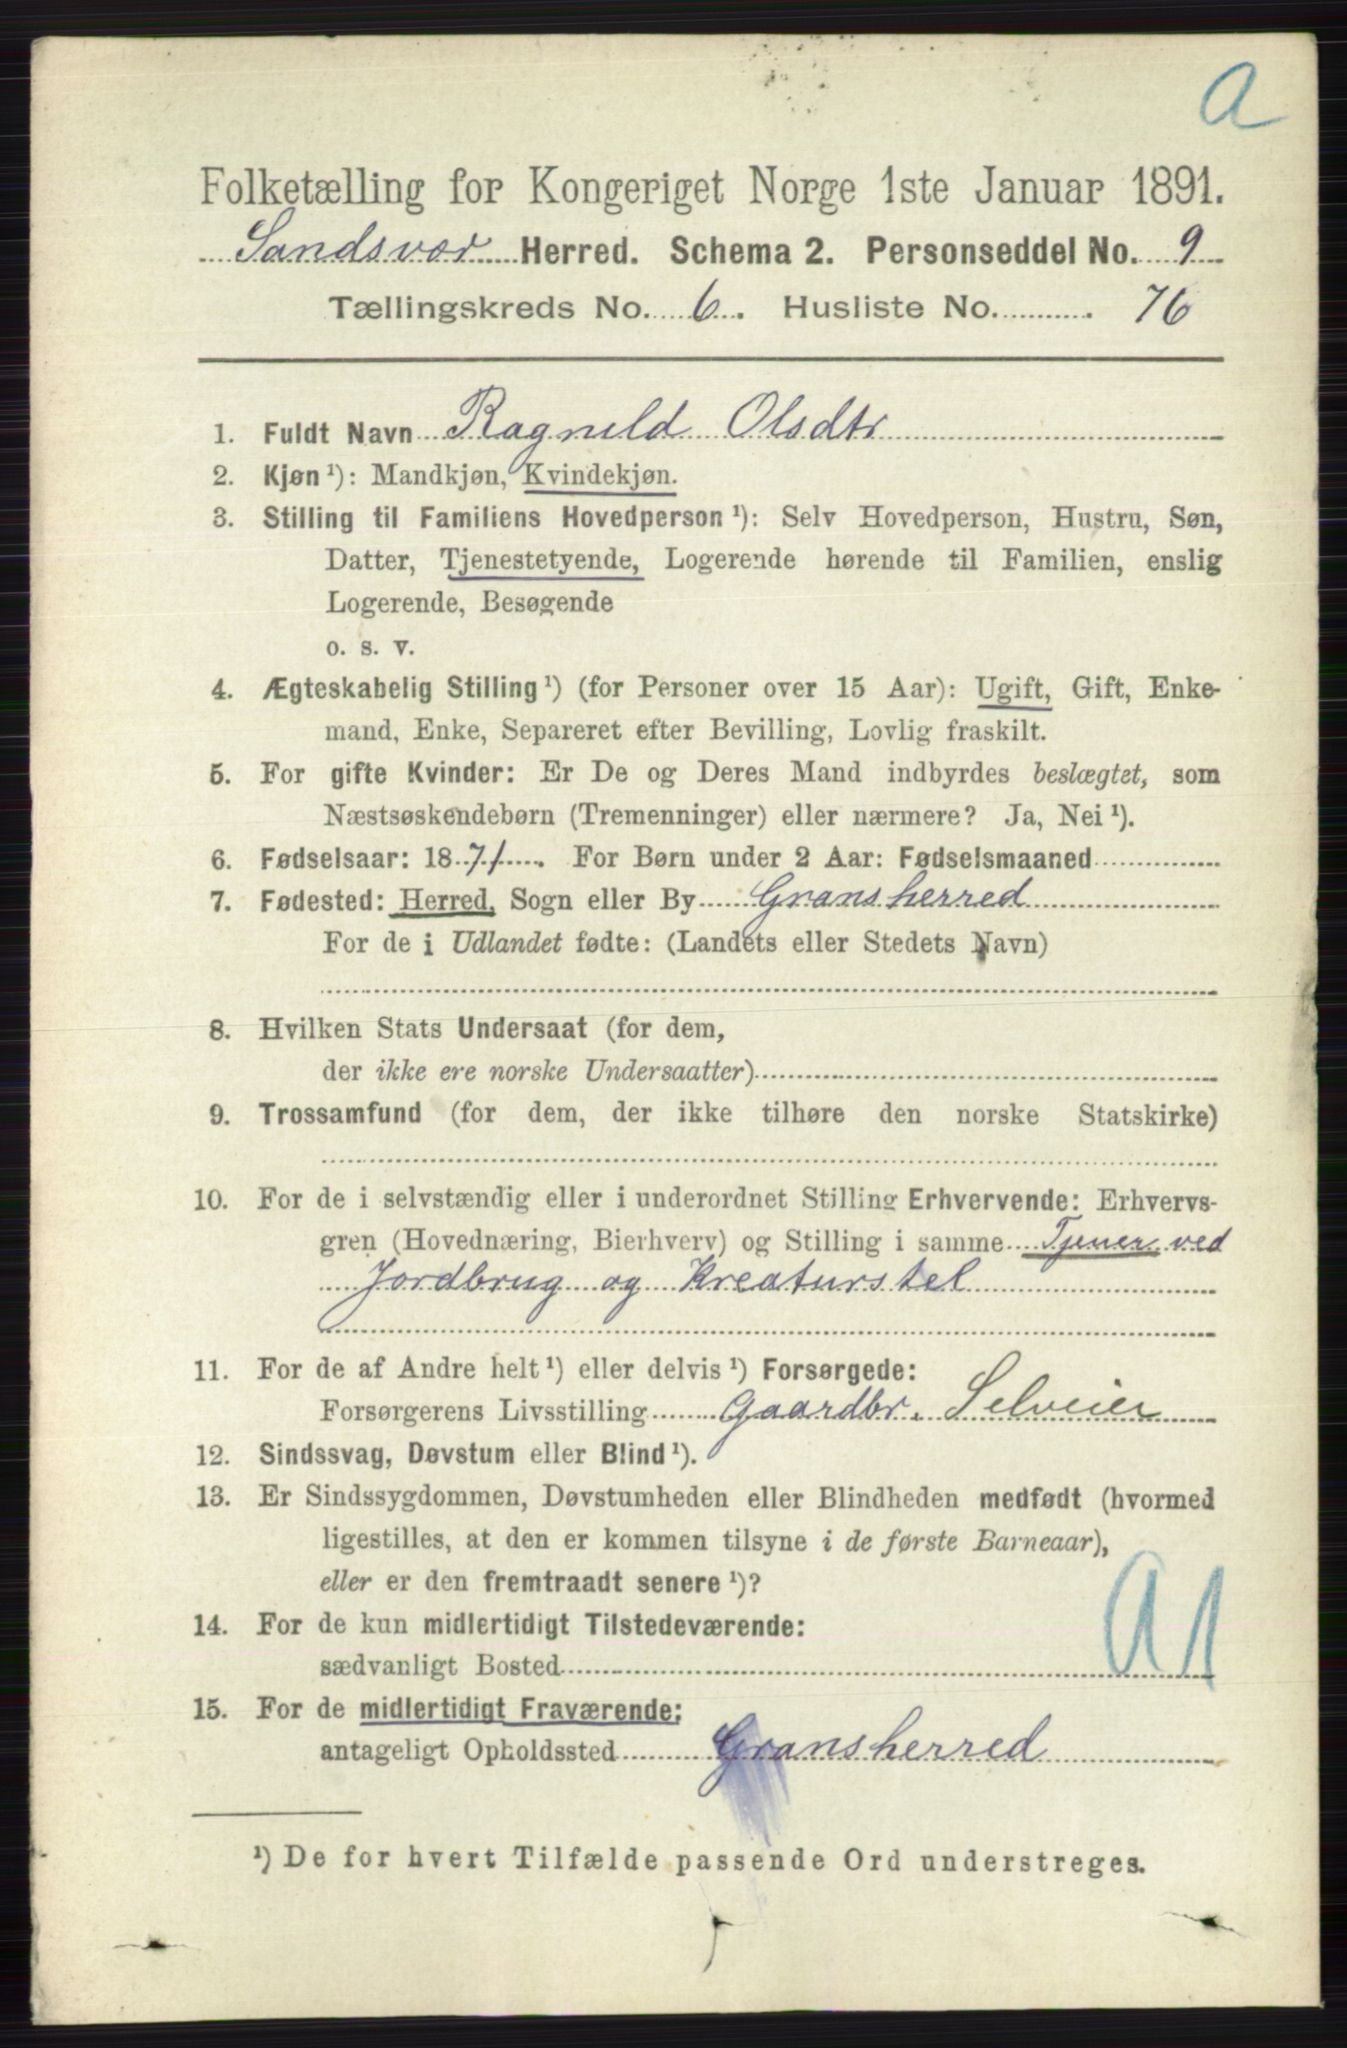 a
Folketælling for Kongeriget Norge 1ste Januar 1891.
Sandsvær Herred. Schema 2. Personseddel No. 9
Tællingskreds No. 6. Husliste No. 76
1. Fuldt Navn Ragnild Olsdtr
2. Kjøn ¹): Mandkjøn, Kvindekjøn.
3. Stilling til Familiens Hovedperson ¹): Selv Hovedperson, Hustru, Søn,
Datter, Tjenestetyende, Logerende hørende til Familien, enslig
Logerende, Besøgende
o. s. v.
4. Ægteskabelig Stilling ¹) (for Personer over 15 Aar): Ugift, Gift, Enke-
mand, Enke, Separeret efter Bevilling, Lovlig fraskilt.
5. For gifte Kvinder: Er De og Deres Mand indbyrdes beslægtet, som
Næstsøskendebørn (Tremenninger) eller nærmere? Ja, Nei ¹).
6. Fødselsaar: 1871. For Børn under 2 Aar: Fødselsmaaned
7. Fødested: Herred, Sogn eller By Gransherred
For de i Udlandet fødte: (Landets eller Stedets Navn)
8. Hvilken Stats Undersaat (for dem,
der ikke ere norske Undersaatter)
9. Trossamfund (for dem, der ikke tilhøre den norske Statskirke)
10. For de i selvstændig eller i underordnet Stilling Erhvervende: Erhvervs-
gren (Hovednæring, Bierhverv) og Stilling i samme Tjener ved
Jordbrug og Kreaturstel
11. For de af Andre helt ¹) eller delvis ¹) Forsørgede:
Forsørgerens Livsstilling Gaardbr. Selveier
12. Sindssvag, Døvstum eller Blind ¹).
13. Er Sindssygdommen, Døvstumheden eller Blindheden medfødt (hvormed
ligestilles, at den er kommen tilsyne i de første Barneaar),
eller er den fremtraadt senere ¹)?
14. For de kun midlertidigt Tilstedeværende:
sædvanligt Bosted
A1
15. For de midlertidigt Fraværende:
antageligt Opholdssted Gransherred
¹) De for hvert Tilfælde passende Ord understreges.